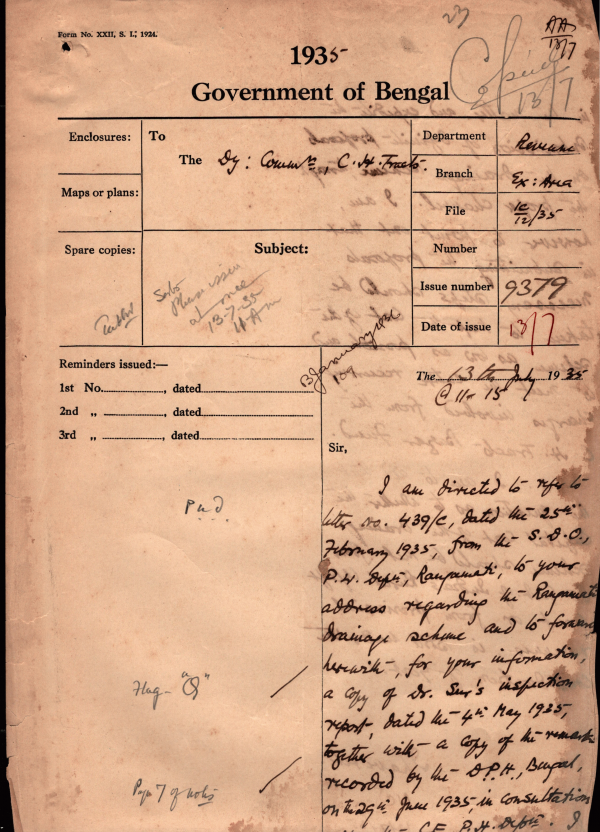 Form No. XXII, S. I., 1924.
23
AA
13/7
1935
Copied
2
13/7
Government of Bengal
Enclosures:
Maps or plans:
Spare copies:
To
The Dy: Commr, C. H. Tracts.
Subject:
Department Revenue
Branch Ex: Area
File 1C/12/35
Number
Issue number 9379
Date of issue 13/7
Please issue
at once
13-7-35
11 AM
Reminders issued:—
1st No. , dated
2nd „ , dated
3rd „ , dated
B January 1936
107
The 13th July 1935
@ 11-15
Sir,
I am directed to refer to
letter no. 439/C, dated the 25th
February 1935, from the S. D. O.,
P. W. Deptt, Rangamati, to your
address regarding the Rangamati
drainage scheme and to forward
herewith, for your information,
a copy of Dr. Sur's inspection
report, dated the 4th May 1935,
together with a copy of the remarks
recorded by the D.P.H., Bengal,
on the 29th June 1935, in consultation
C.E. P.H. Deptt. I
P u d
Flag - "Q"
Page 7 of notes